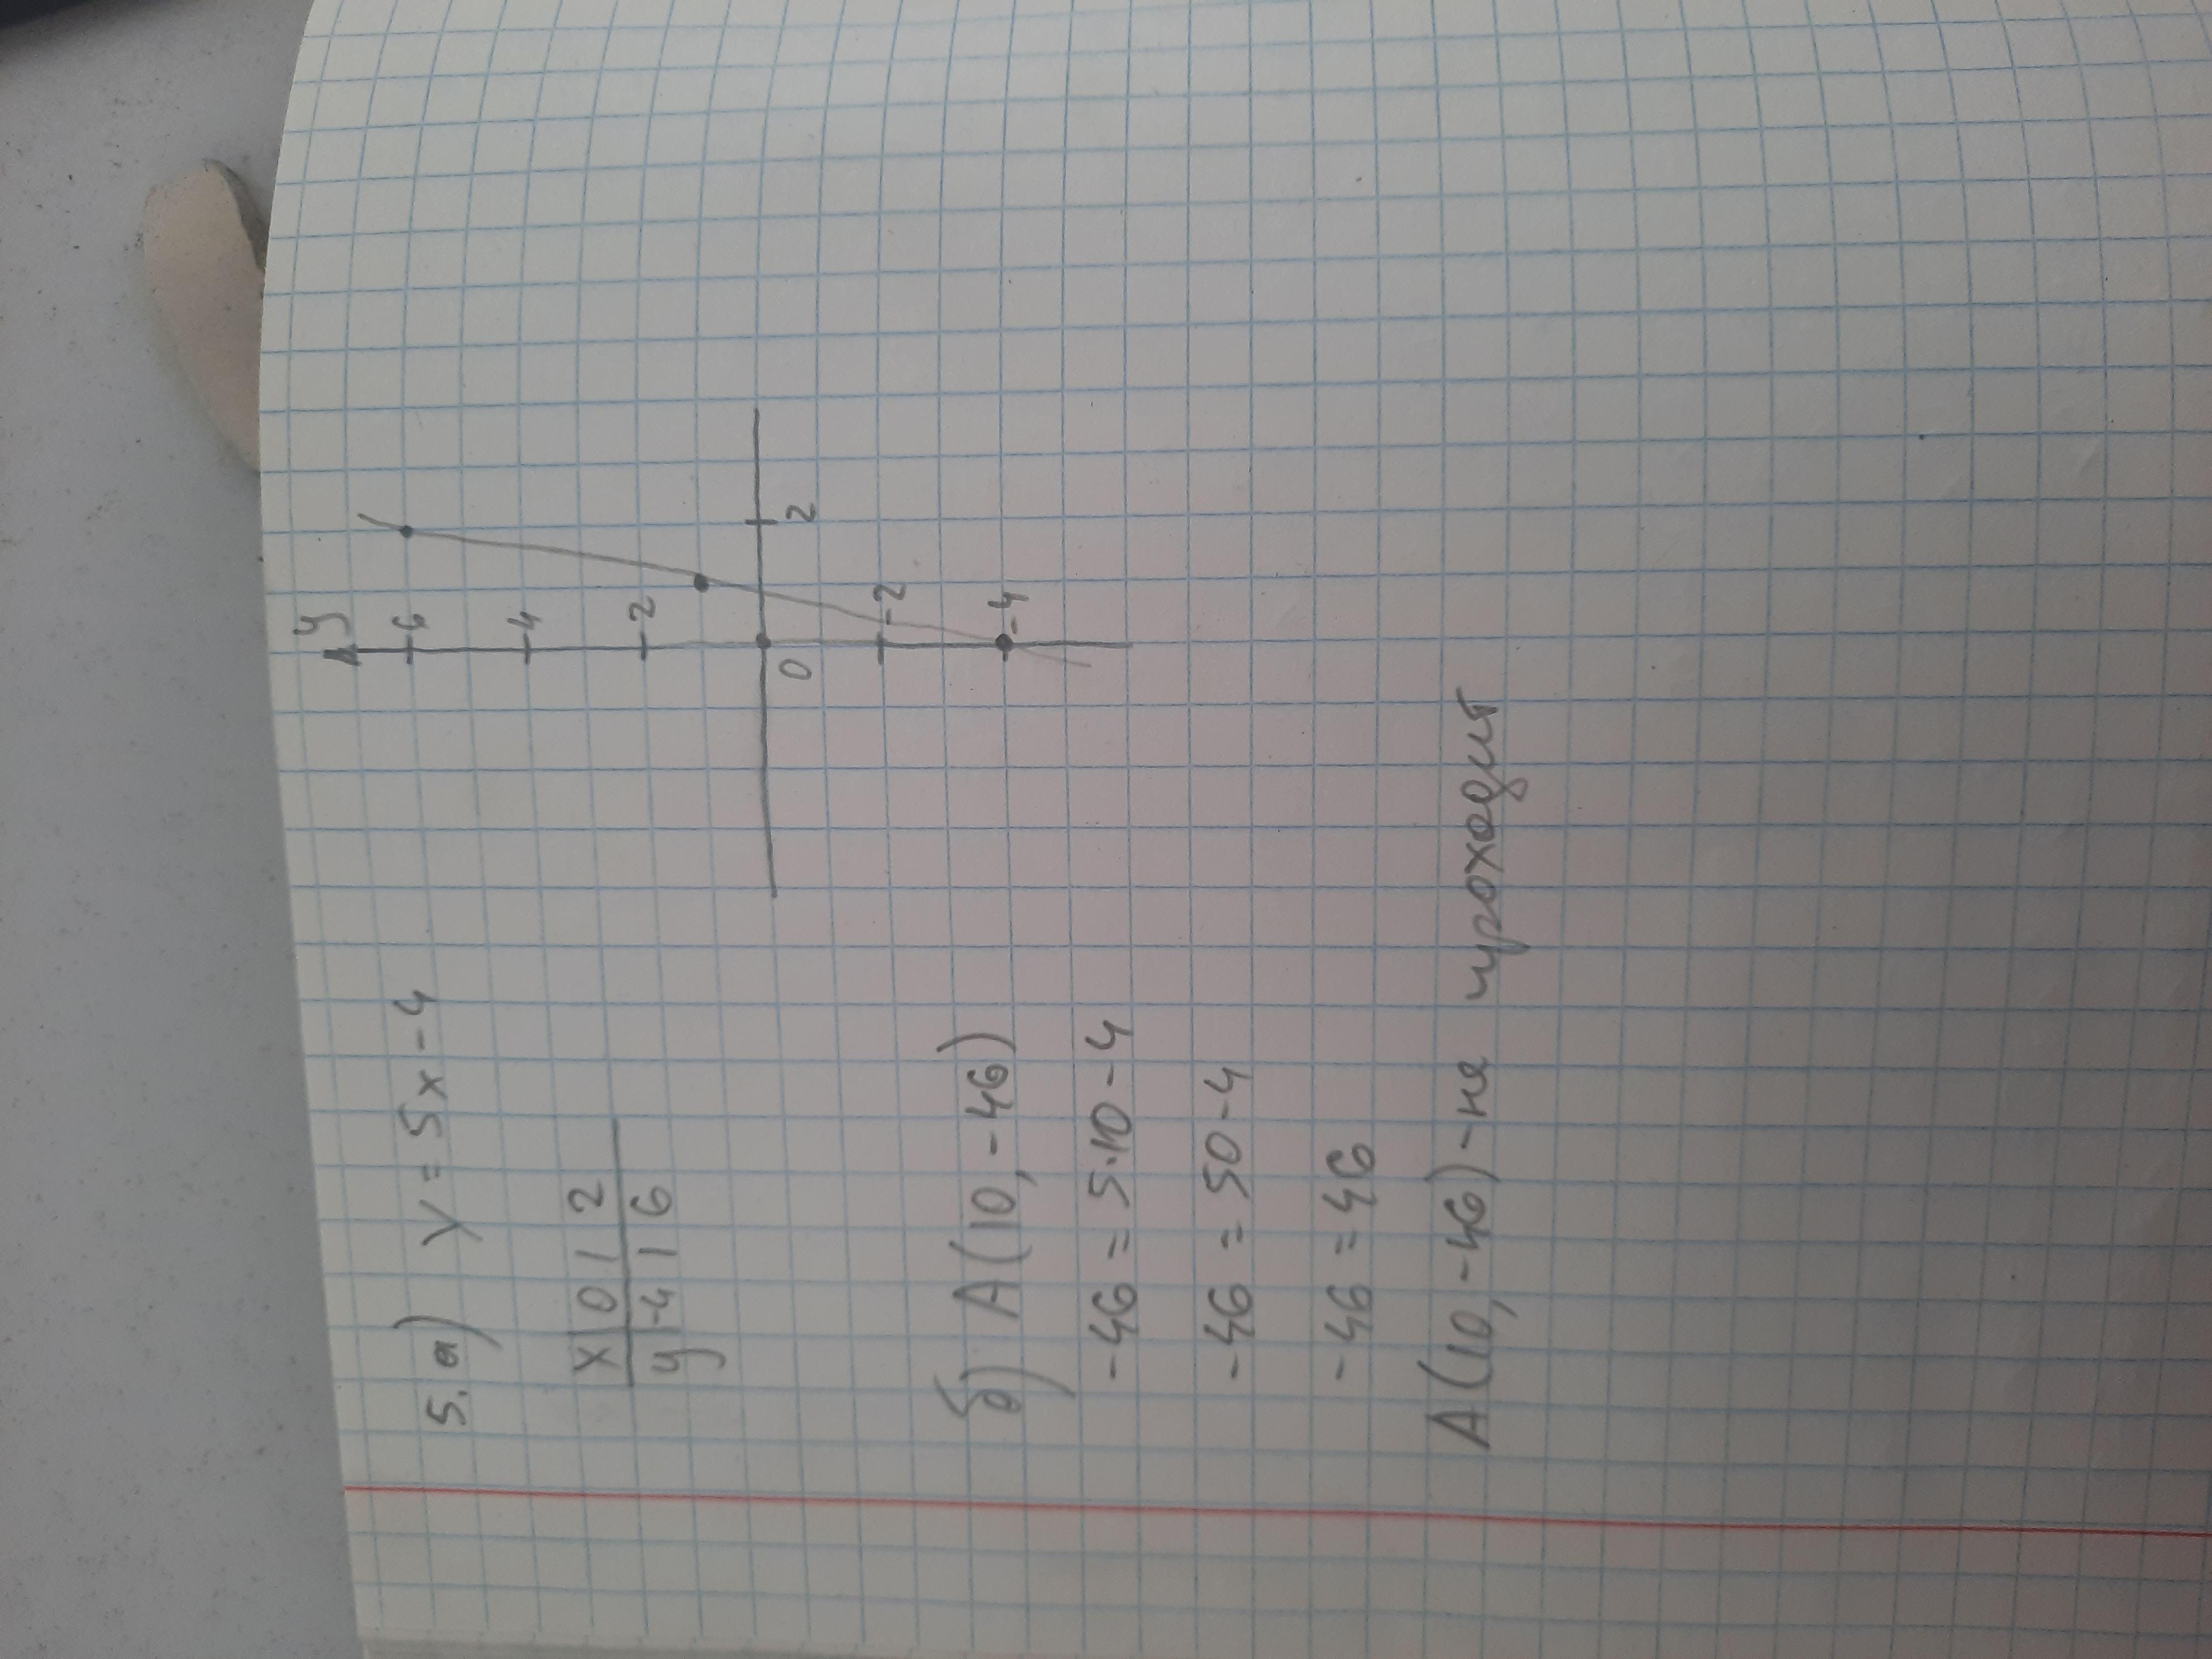 5. а) y = 5x - 4
x | 0 1 2
y | -4 1 6
y
6
4
2
0
2
-2
-4
б) A(10, -46)
-46 = 5·10 - 4
-46 = 50 - 4
-46 = 46
A(10, -46) - не проходит